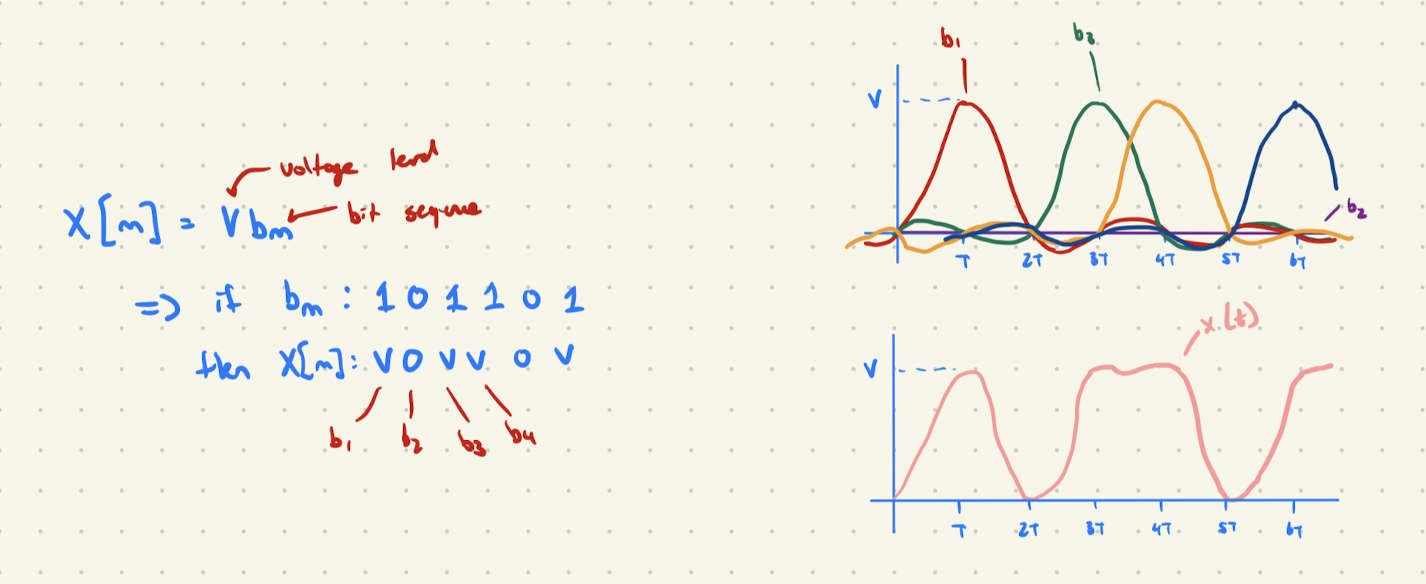 voltage level
X[m] = Vbm
bit sequence
=> if bm : 1 0 1 1 0 1
then X[m]: V 0 V V 0 V
b1 b2 b3 b4
b1 b3
V
b2
T 2T 3T 4T 5T 6T
x(t)
V
T 2T 3T 4T 5T 6T